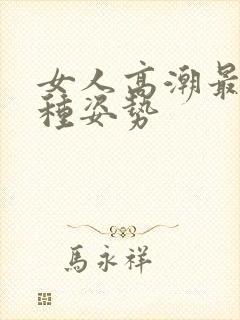 女人高潮最
種姿勢
馬永祥